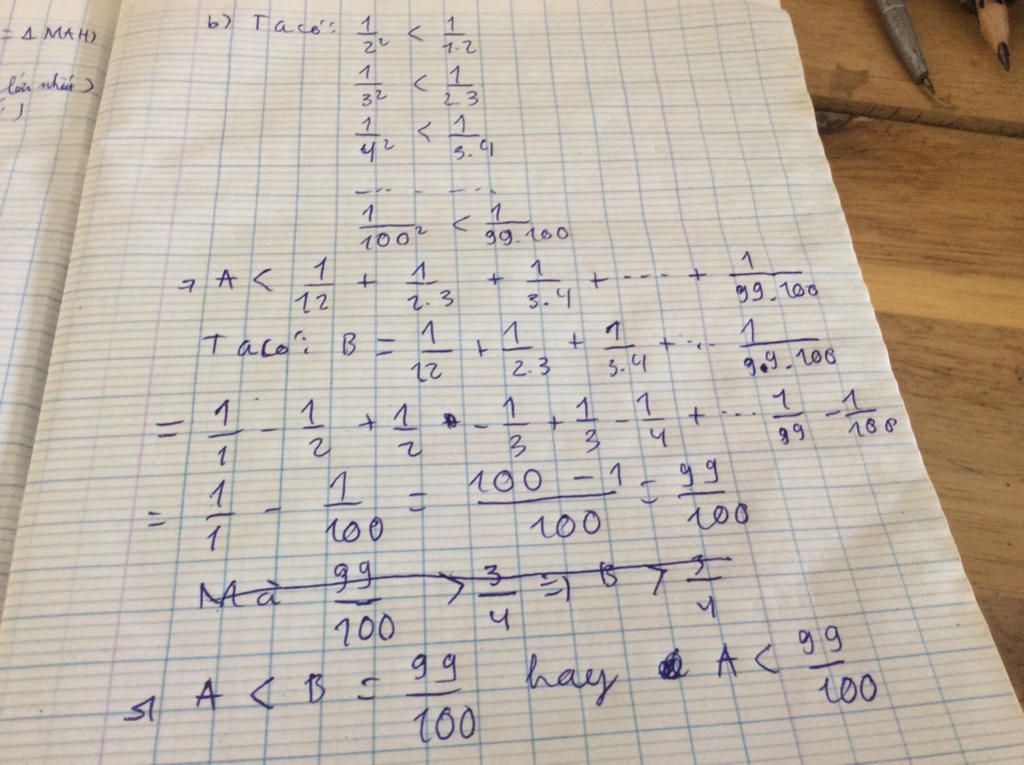 = Δ MAH)
lớn nhất)
b) Ta có: 1/2² < 1/1.2
1/3² < 1/2.3
1/4² < 1/3.4
... - ...
1/100² < 1/99.100
⇒ A < 1/12 + 1/2.3 + 1/3.4 + ---- + 1/99.100
Ta có: B = 1/12 + 1/2.3 + 1/3.4 + ... 1/9.9.100
= 1/1 - 1/2 + 1/2 - 1/3 + 1/3 - 1/4 + ... 1/99 - 1/100
= 1/1 - 1/100 = 100 - 1/100 = 99/100
Mà 99/100 > 3/4 ⇒ B > 3/4
⇒ A < B = 99/100 hay A < 99/100